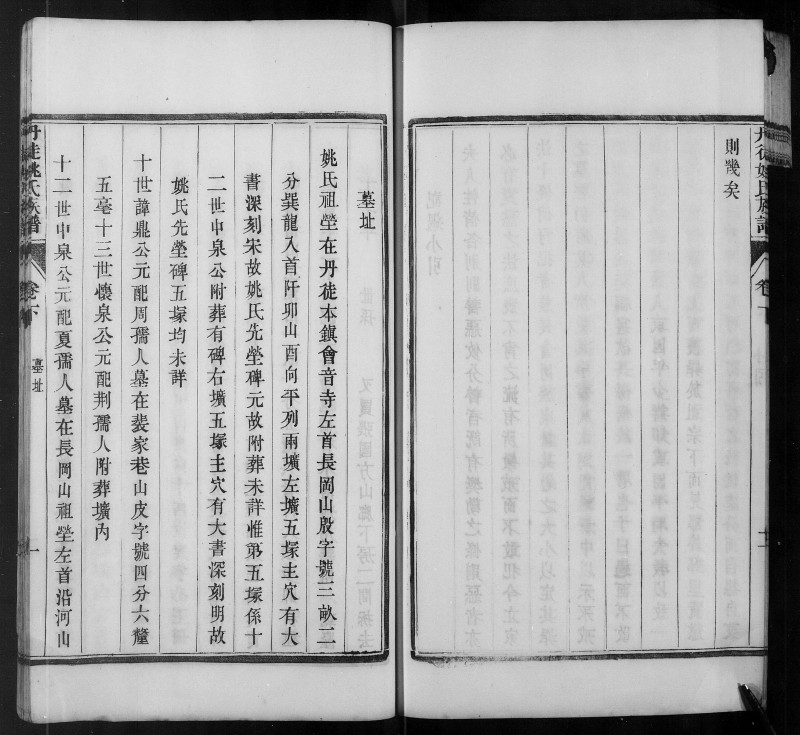 則幾矣
丹徒姚氏族譜 卷下 十一
墓址
姚氏祖塋在丹徒本鎮會音寺左首長岡山殷字號三畝二
分巽龍入首阡卯山酉向平列兩壙左壙五塚主穴有大
書深刻宋故姚氏先塋碑元故附葬未詳惟第五塚係十
二世中泉公附葬有碑右壙五塚主穴有大書深刻明故
姚氏先塋碑五塚均未詳
十世諱鼎公元配周孺人墓在裴家巷山皮字號四分六釐
五毫十三世懷泉公元配荆孺人附葬壙內
十二世中泉公元配夏孺人墓在長岡山祖塋左首沿河山
丹徒姚氏族譜 卷下 墓址 一